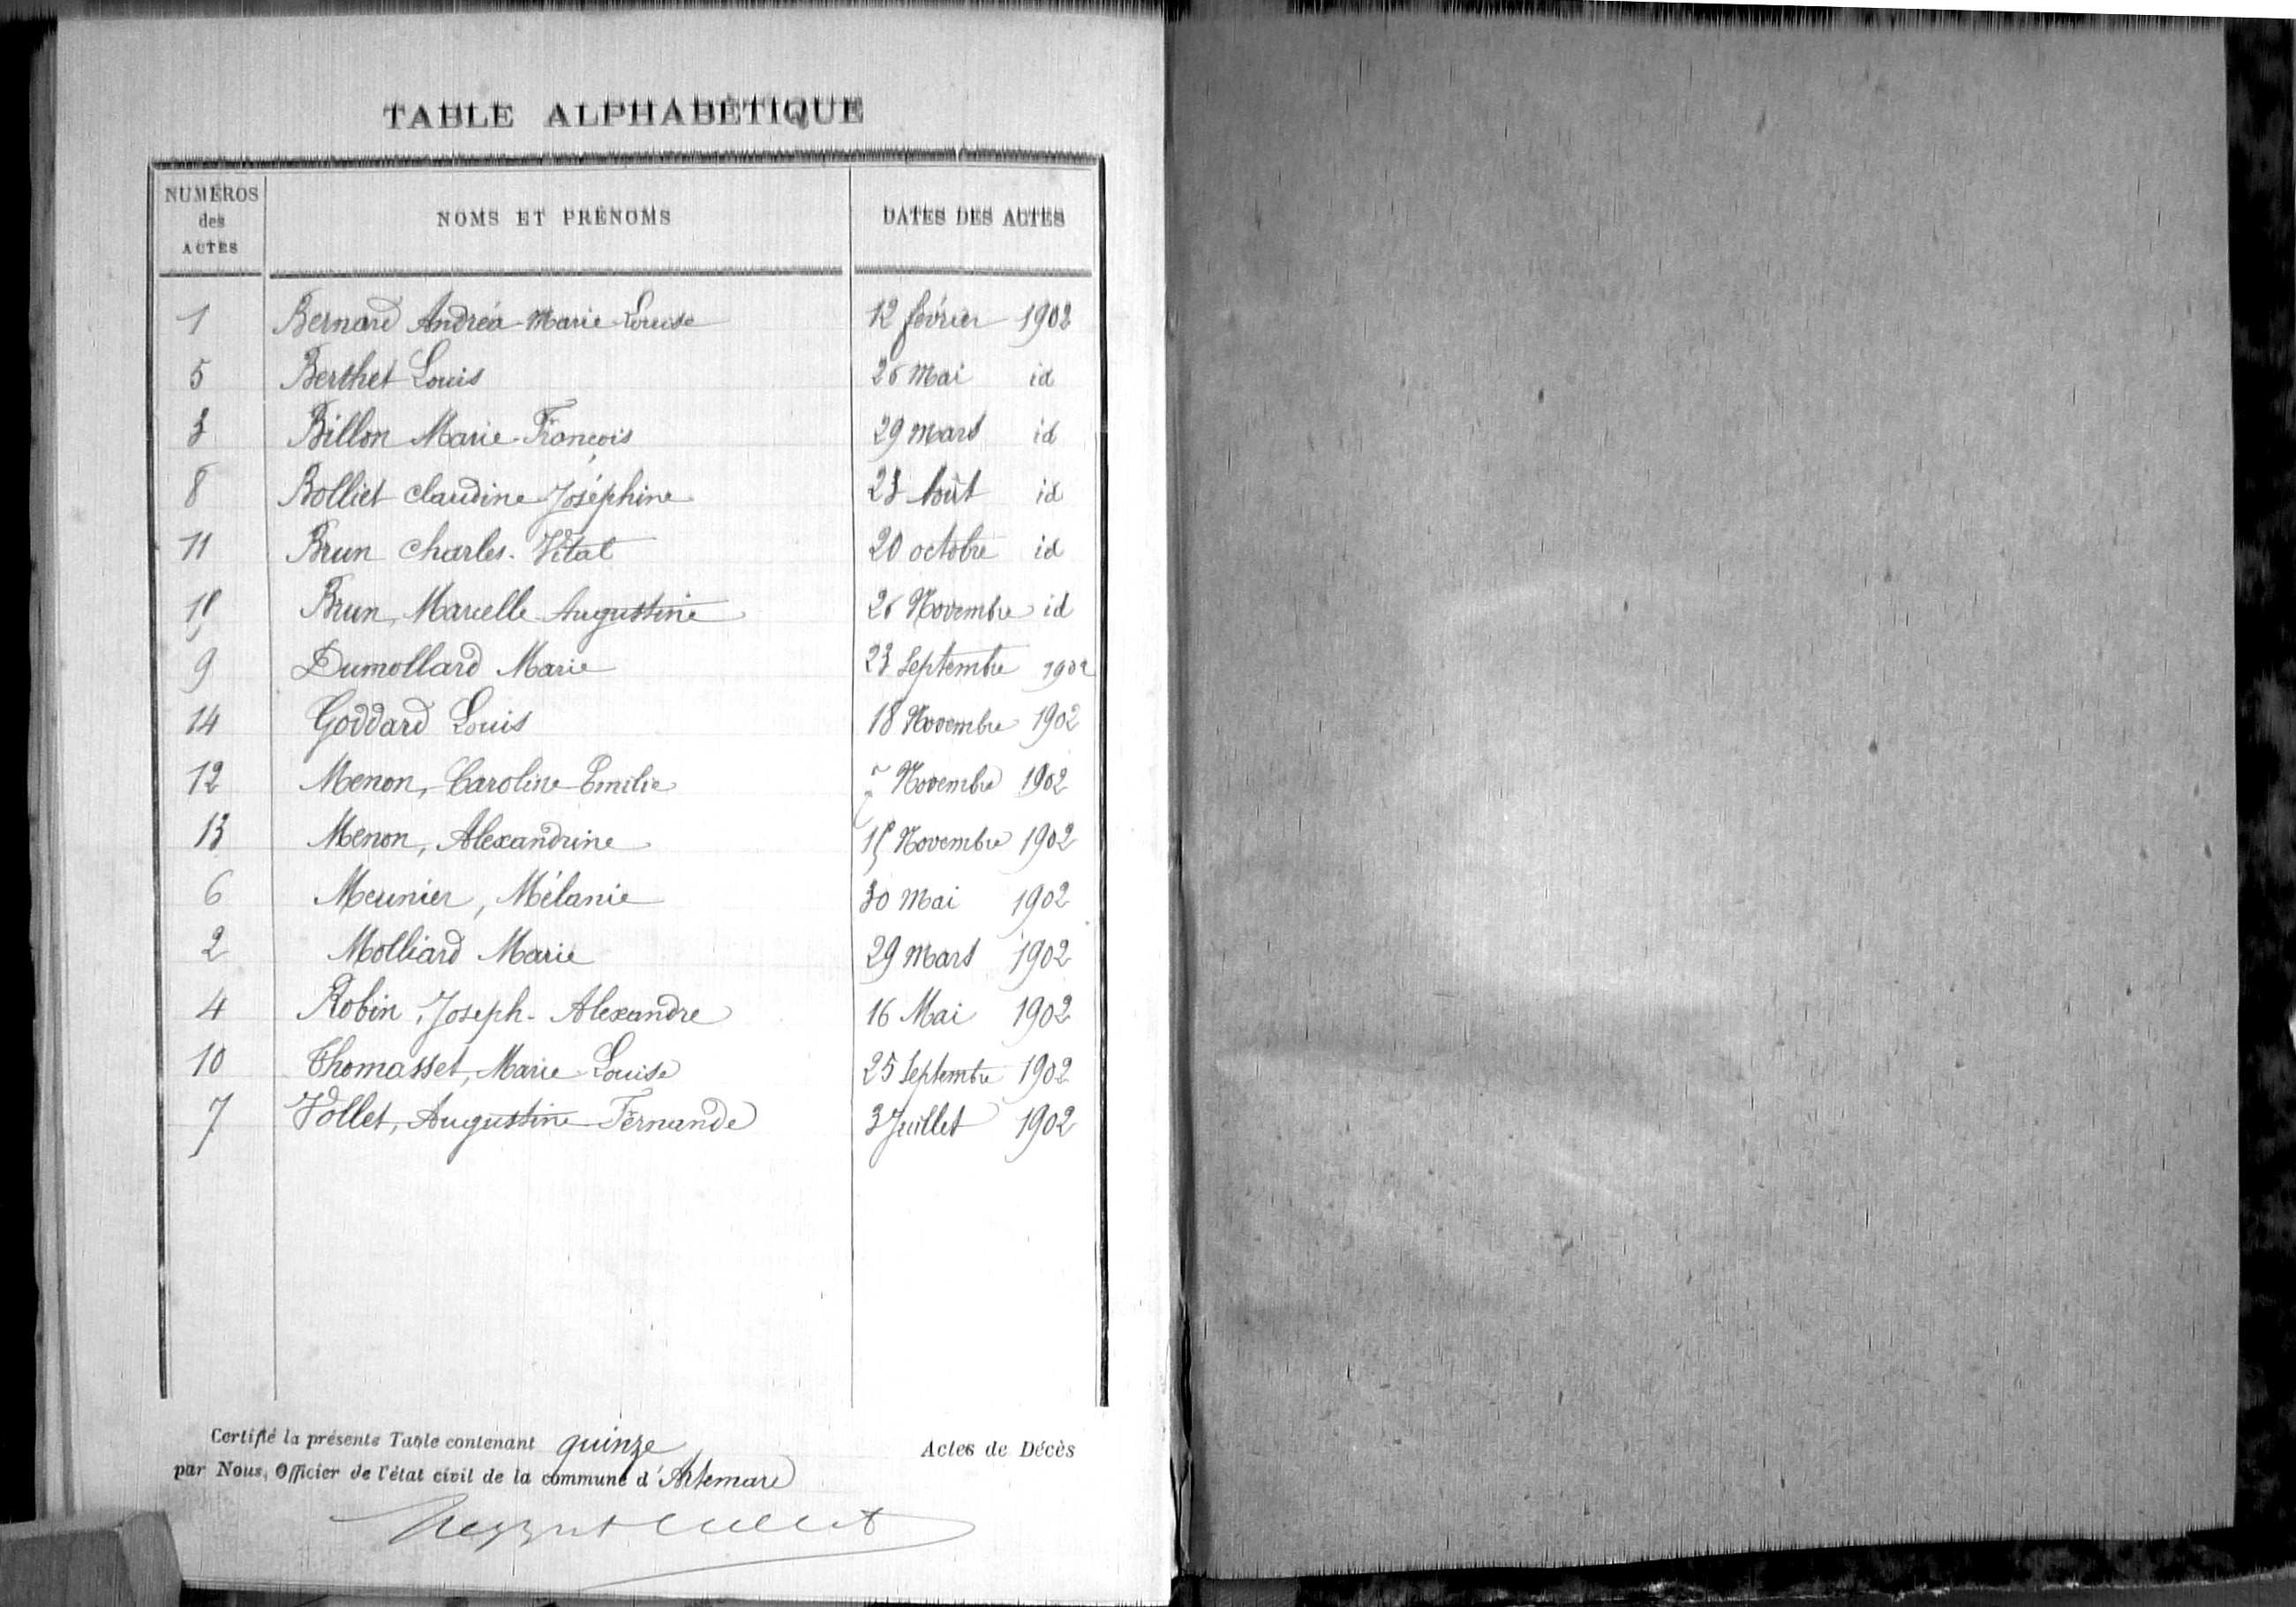 TABLE ALPHABÉTIQUE
NUMÉROS des ACTES NOMS ET PRÉNOMS DATES DES ACTES
1 Bernard Andréa-Marie-Louise 12 février 1902
5 Berthet Louis 26 Mai id
3 Billon Marie-François 29 mars id
8 Bolliet Claudine Joséphine 23 Août id
11 Brun Charles-Vital 20 octobre id
15 Brun, Marcelle Augustine 26 Novembre id
9 Dumollard Marie 23 Septembre 1902
14 Goddard Louis 18 Novembre 1902
12 Menon, Caroline-Emilie Novembre 1902
13 Menon, Alexandrine 15 Novembre 1902
6 Meunier, Mélanie 30 Mai 1902
2 Molliard Marie 29 Mars 1902
4 Robin, Joseph-Alexandre 16 Mai 1902
10 Thomasset, Marie-Louise 25 Septembre 1902
7 Vollet, Augustine-Fernande 3 Juillet 1902
Certifié la présente Table contenant quinze Actes de Décès
par Nous, Officier de l'état civil de la commune d'Artemare